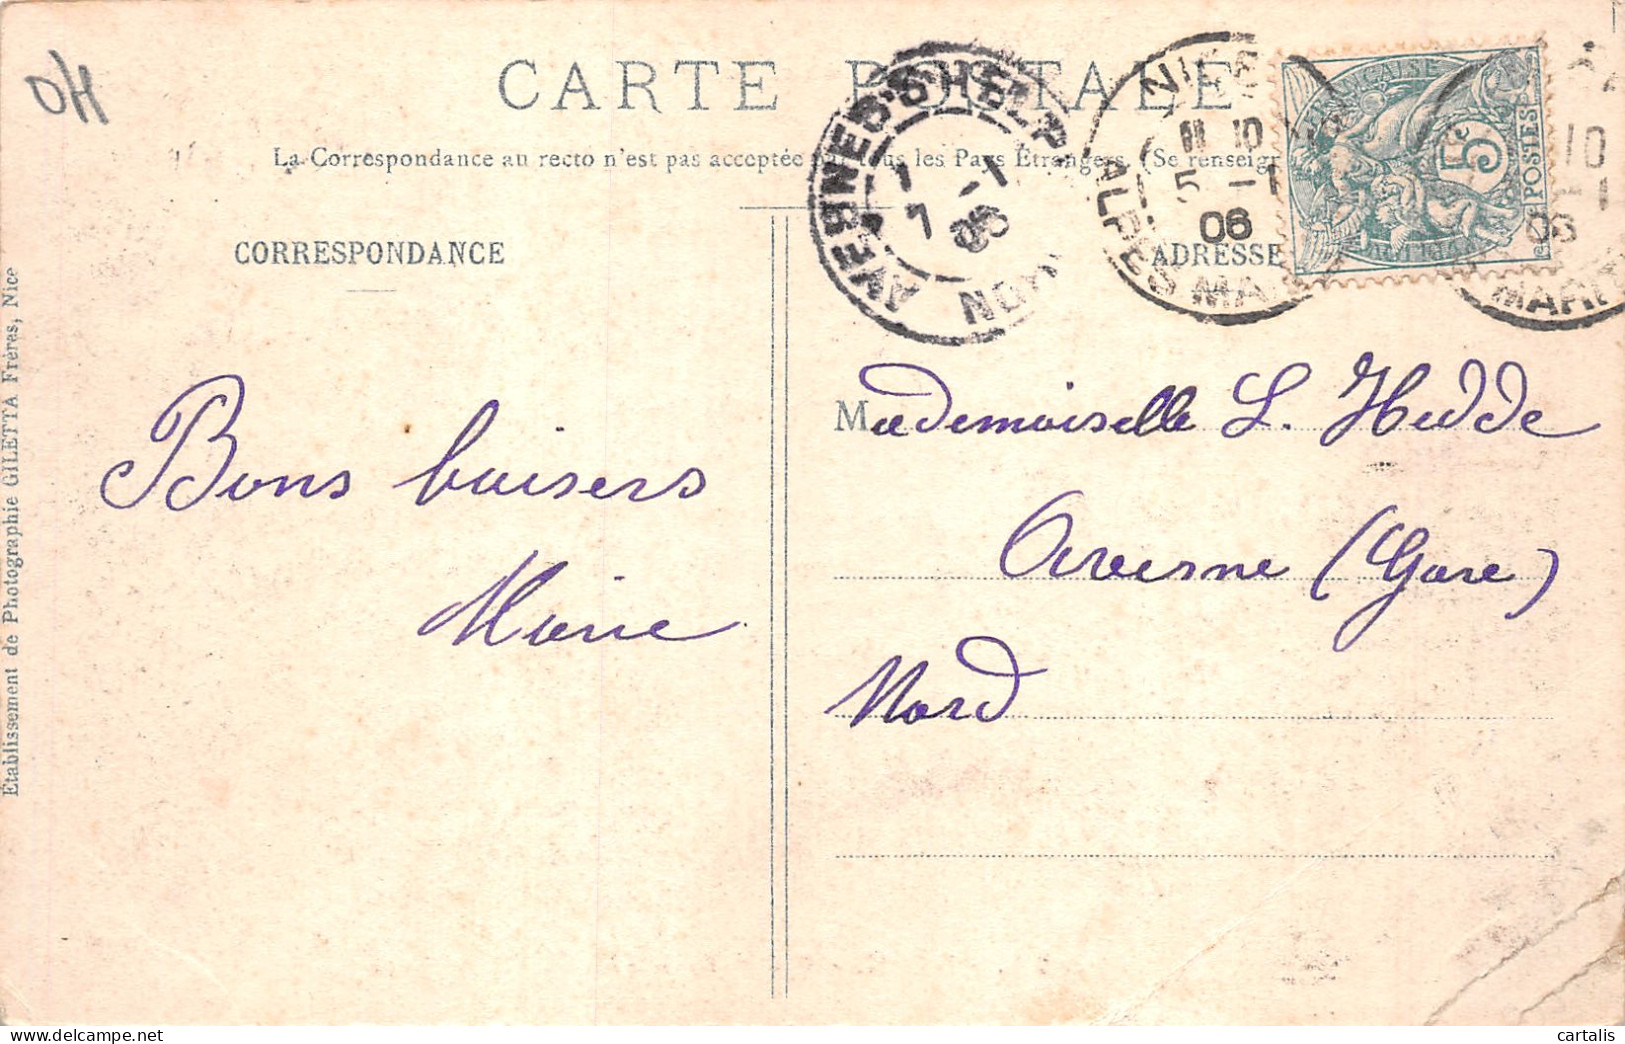 O/H
CARTE POSTALE
La Correspondance au recto n'est pas acceptée par tous les Pays Étrangers. (Se renseigr
CORRESPONDANCE
ADRESSE
AVESNES-S-HELPE
1 -1
7
06
NORD
NICE
10
5 -1
06
ALPES MA
FRANÇAISE
5c
POSTES
10
-1
06
MARIT
Établissement de Photographie GILETTA Frères, Nice
Bons baisers
Marie
Mademoiselle L. Hedde
Avesne (Gare)
Nord
cartalis